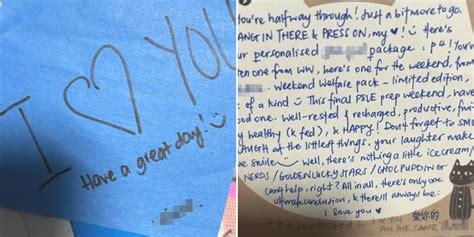 I ♡ YOU
Have a great day! :)
You're halfway through! Just a bit more to go.
HANG IN THERE & PRESS ON, my ♥! :) Here's
your personalised package : p4! You've
one from WW, here's one for the weekend, from
Weekend Welfare pack - limited edition,
of a kind :) This final PSLE prep weekend, have
good one. Well-rested & recharged, productive, fun
healthy (& fed), & HAPPY! Don't forget to SMI
LAUGH at the littlest things, your laughter make
me smile :) Well, there's nothing a little icecream/
NERDS/GOLDEN LUCKY STARS/CHOC PUDDING or
can't help, right? All in all, there's only one
ultimate conclusion, & there'll always be:
I love you ♥
爱你的
ALL THE SAME